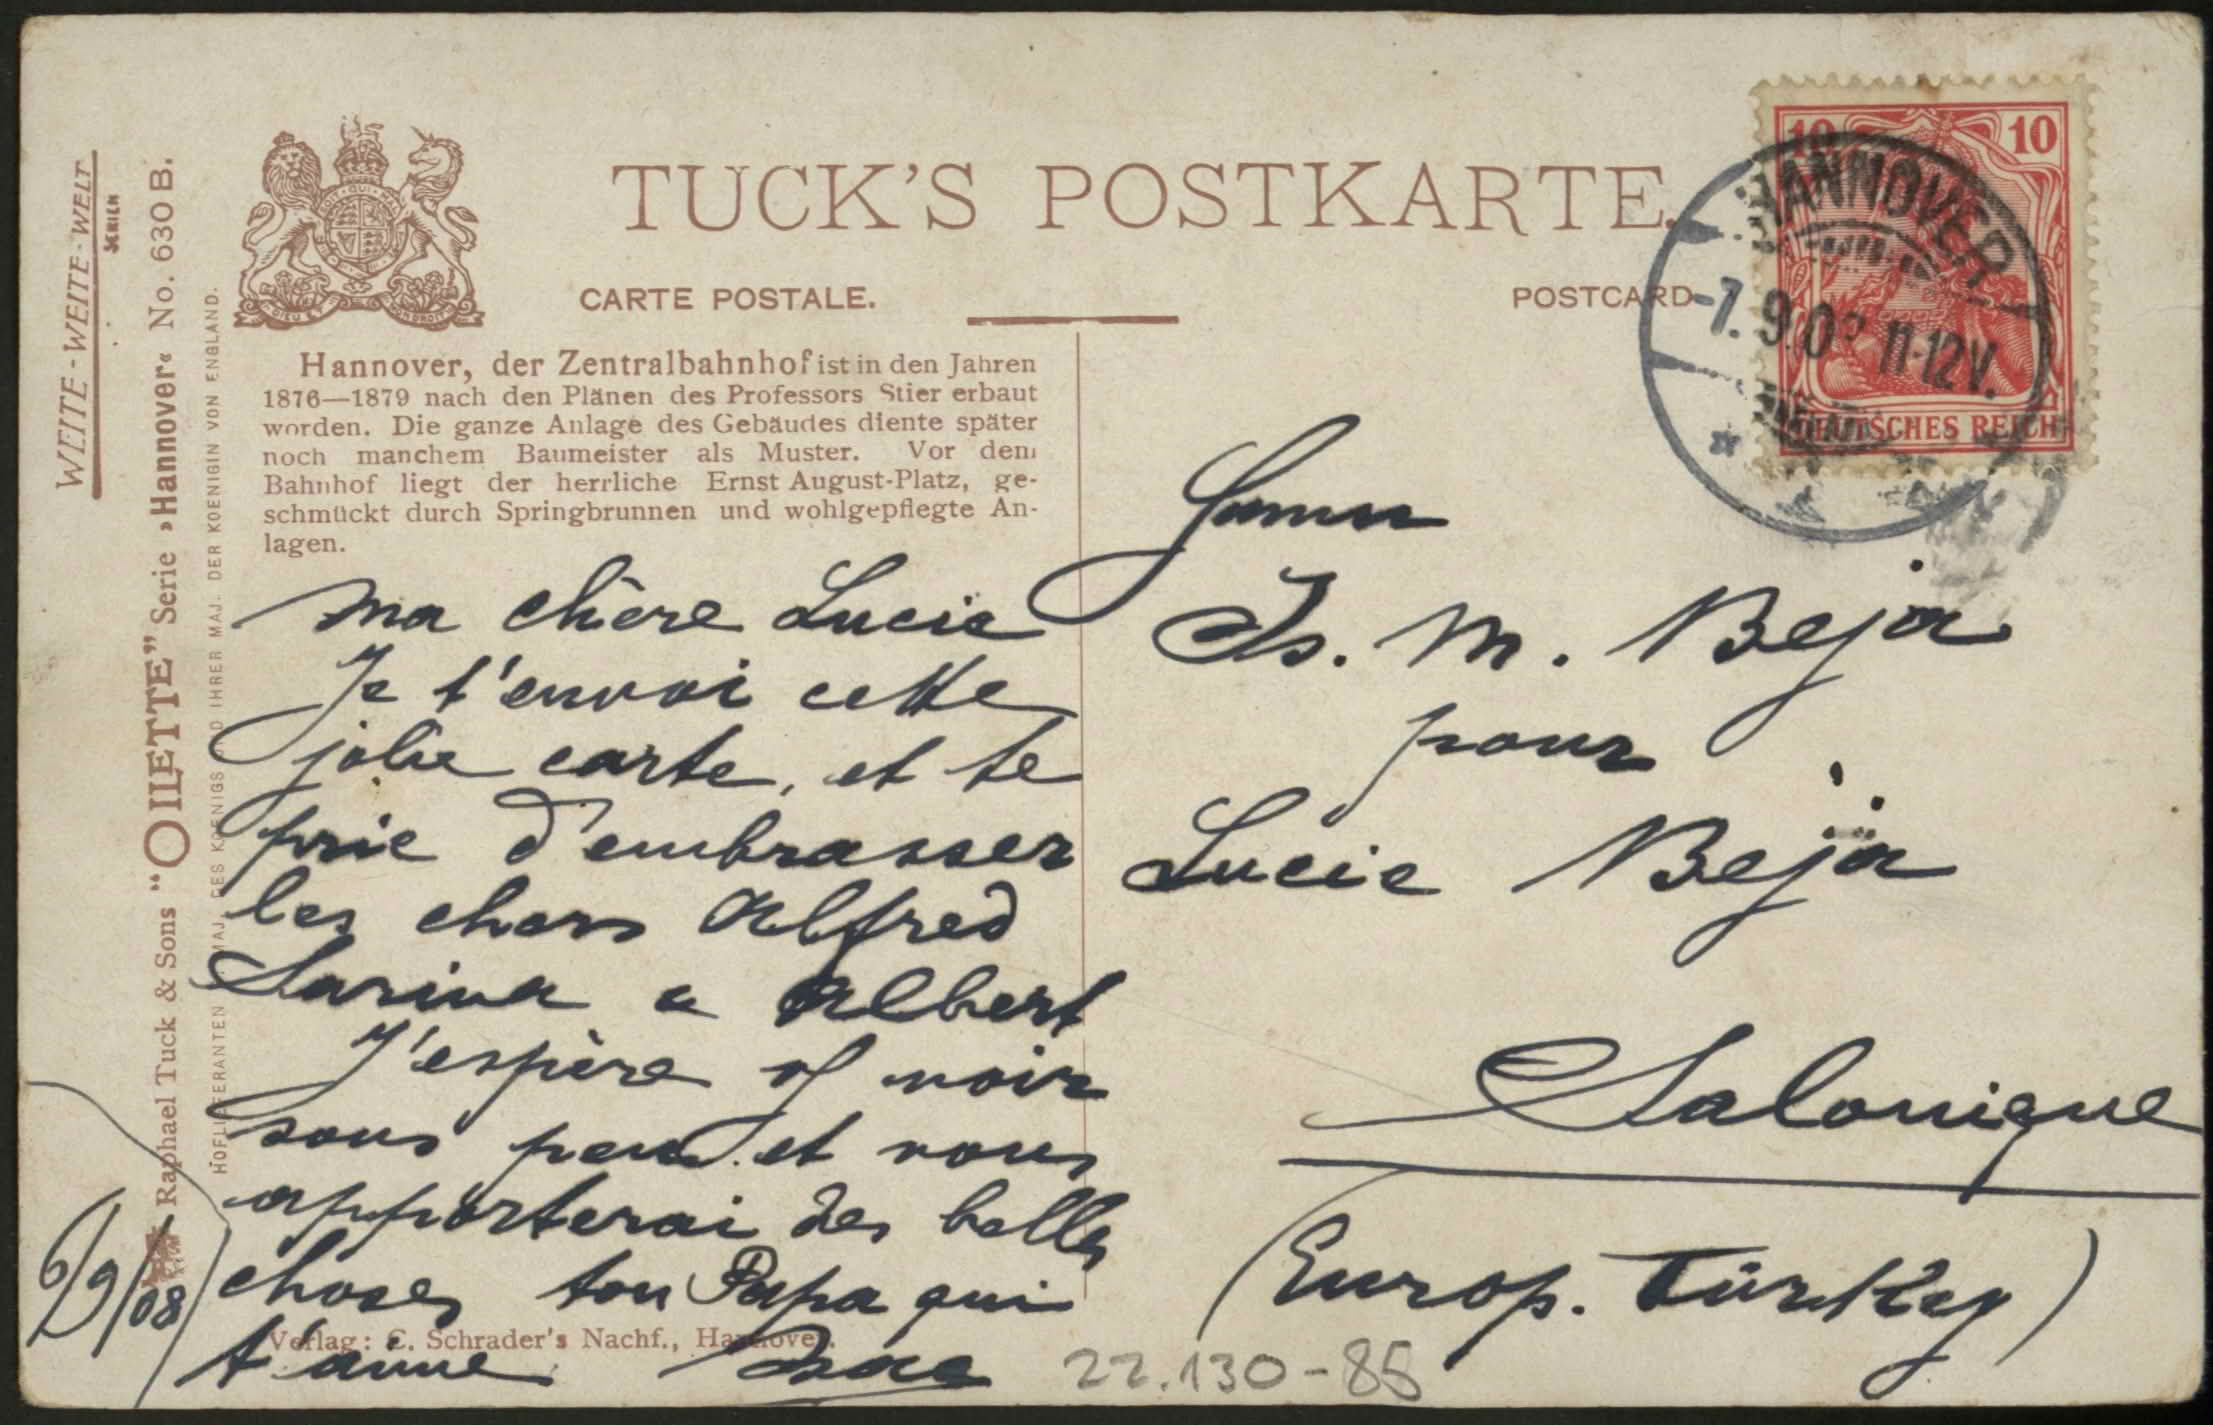 WEITE-WEITE-WELT
SERIEN
Raphael Tuck & Sons "OILETTE" Serie »Hannover« No. 630 B.
HOFLIEFERANTEN MAJ. DES KOENIGS UND IHRER MAJ. DER KOENIGIN VON ENGLAND.
TUCK'S POSTKARTE.
CARTE POSTALE.
POSTCARD
10 10
DEUTSCHES REICH
HANNOVER
-7.9.0 11-12V.
Hannover, der Zentralbahnhof ist in den Jahren
1876—1879 nach den Plänen des Professors Stier erbaut
worden. Die ganze Anlage des Gebäudes diente später
noch manchem Baumeister als Muster. Vor dem
Bahnhof liegt der herrliche Ernst August-Platz, ge-
schmückt durch Springbrunnen und wohlgepflegte An-
lagen.
ma chère Lucie
Je t'envoi cette
jolie carte, et te
prie d'embrasser
les chers Alfred
Sarina & Albert
J'espère vs voir
sous peu et vous
apporterai des belles
choses ton Papa qui
t'aime Isac
6/9/08
Verlag: C. Schrader's Nachf., Hannover.
Is. M. Beja
pour
Lucie Beja
Salonique
(Europ. Türkey)
22.130-85